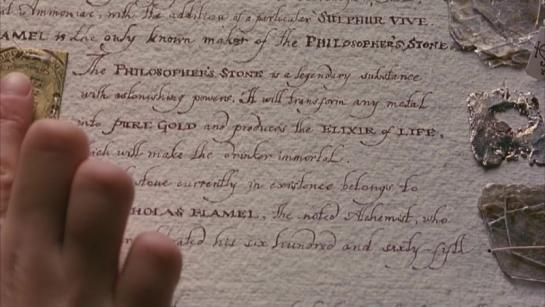 Ammoniac, with the addition of a particular SULPHUR VIVE.
AMEL is the only known maker of the PHILOSOPHER'S STONE
The PHILOSOPHER'S STONE is a legendary substance
with astonishing powers. It will transform any metal
into PURE GOLD and produces the ELIXIR of LIFE,
ich will make the drinker immortal.
stone currently in existence belongs to
HOLAS FLAMEL, the noted Alchemist, who
his six hundred and sixty-fift